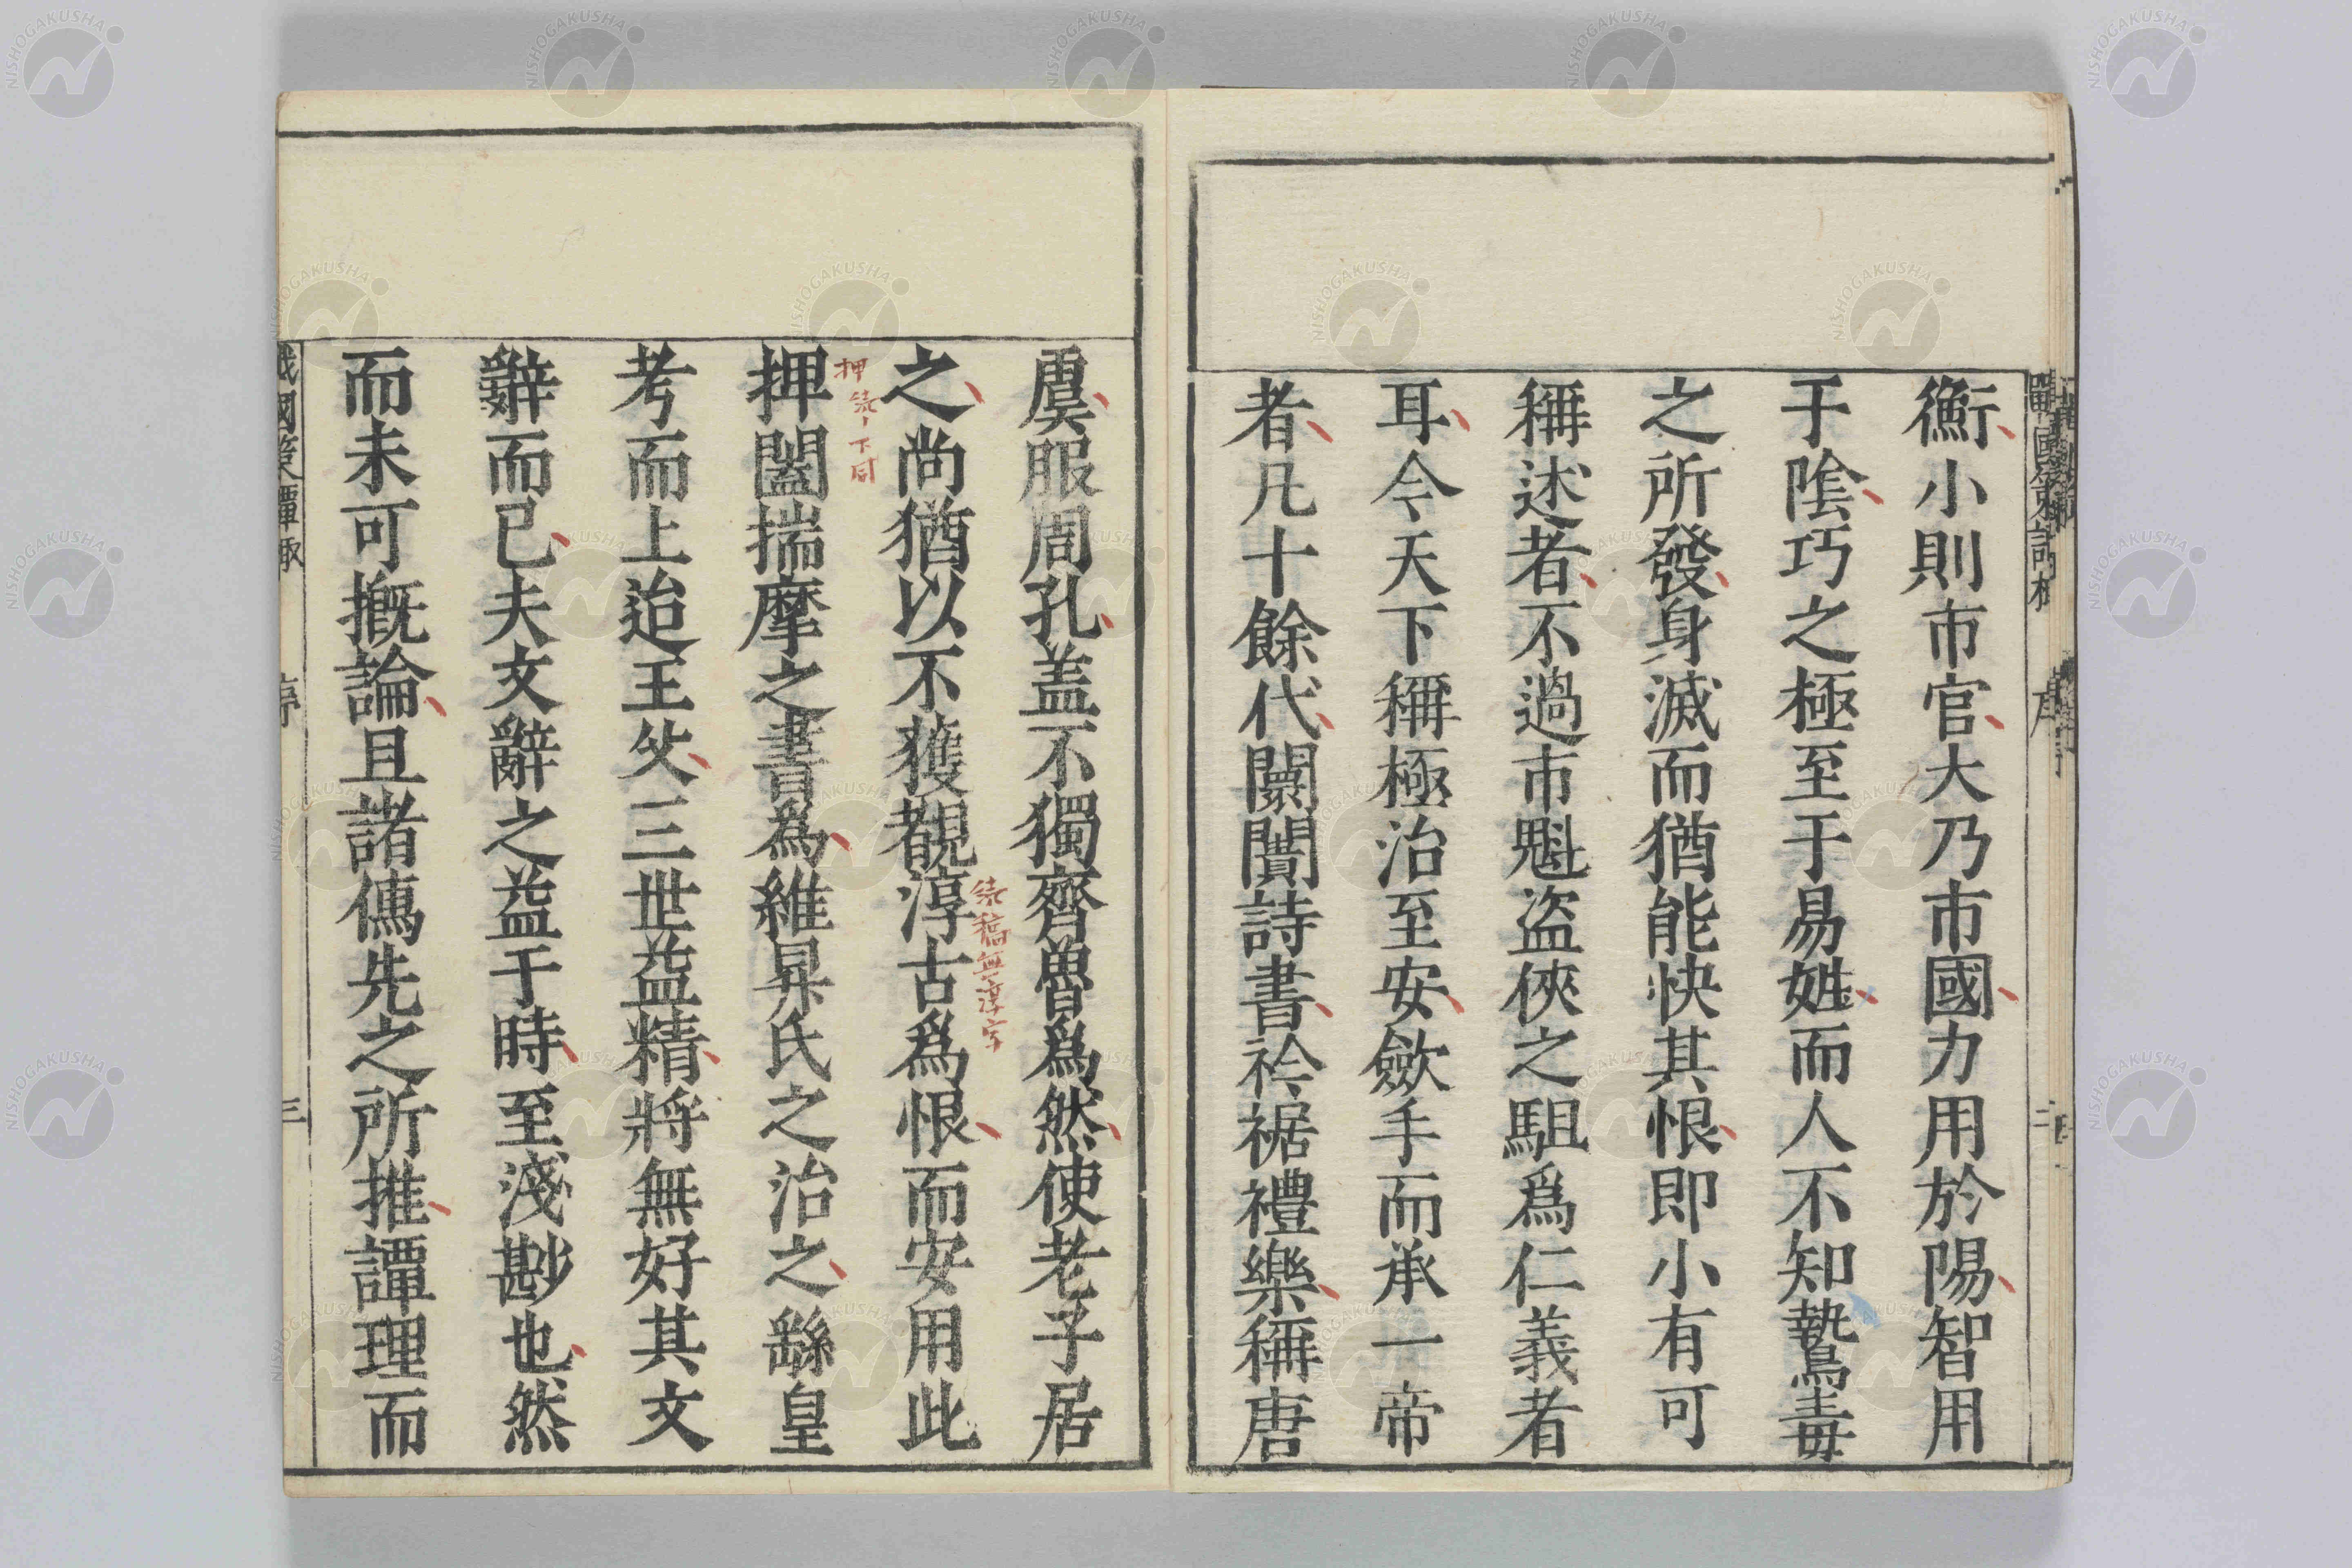 衡小則市官大乃市國力用於陽智用
于陰巧之極至于易姓而人不知鷙毒
之所發身滅而猶能快其恨即小有可
稱述者不過市魁盜俠之駔爲仁義者
耳今天下稱極治至安歛手而承一帝
者凡十餘代闤闠詩書衿裾禮樂稱唐
虞服周孔盖不獨齊魯爲然使老子居
之尚猶以不獲覩淳古爲恨而安用此
續稿無淳字
押闔揣摩之書爲維昇氏之治之繇皇
考而上迨王父三世益精將無好其文
辭而已夫文辭之益于時至淺尠也然
而未可摡論且諸傳先之所推譚理而
戰國策譚棷 序 三
NISHOGAKUSHA